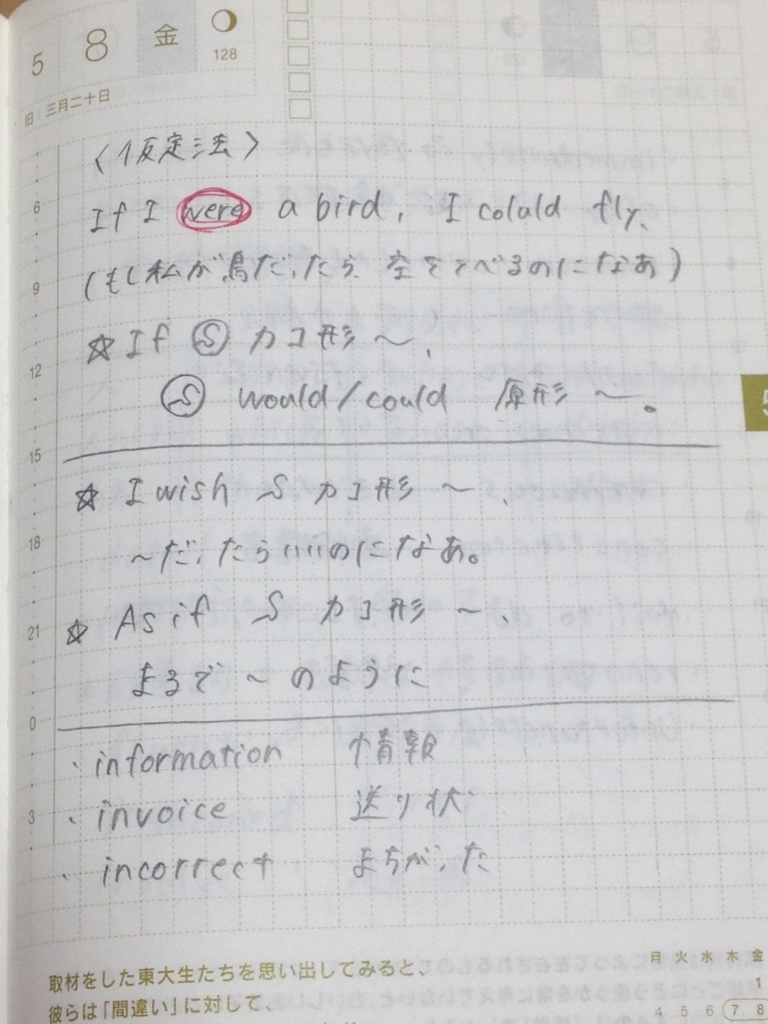 5 8 金
128
旧 三月二十日
〈仮定法〉
6
If I were a bird, I coluld fly.
(もし私が鳥だったら 空をとべるのになあ)
9
☆ If Ⓢ カコ形 〜、
12
Ⓢ would/could 原形 〜。
15
☆ I wish S カコ形 〜、
18
〜だったらいいのになあ。
21
☆ As if S カコ形 〜、
まるで 〜 のように
0
・information 情報
3
・invoice 送り状
・incorrect まちがった
取材をした東大生たちを思い出してみると、
彼らは「間違い」に対して、
月 火 水 木 金
1
4 5 6 7 8